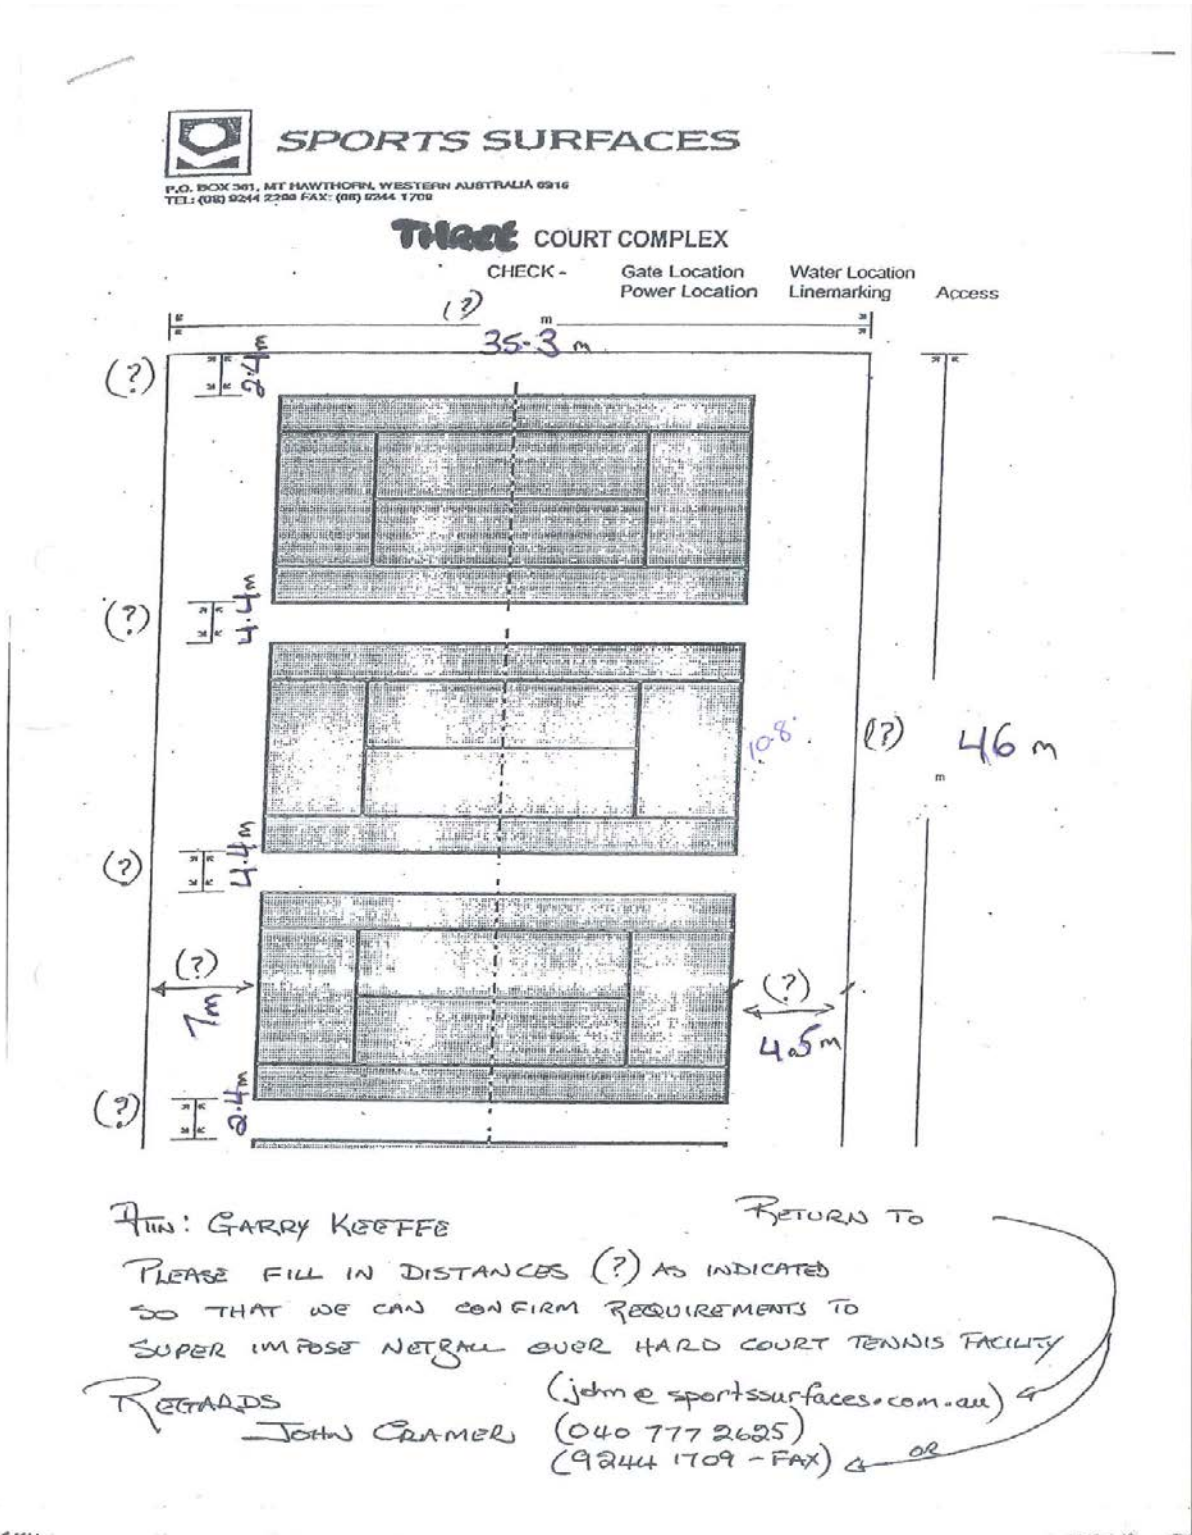 SPORTS SURFACES
P.O. BOX 361, MT HAWTHORN, WESTERN AUSTRALIA 6916
TEL: (08) 9244 2200 FAX: (08) 9244 1709
THREE COURT COMPLEX
CHECK - Gate Location Water Location
Power Location Linemarking Access
(?)
m
35.3 m
(?)
2.4m
(?)
4.4m
10.8
(?)
46 m
m
(?)
4.4m
(?)
7m
(?)
4.5m
(?)
2.4m
Attn: GARRY KEEFFE
RETURN TO
PLEASE FILL IN DISTANCES (?) AS INDICATED
SO THAT WE CAN CONFIRM REQUIREMENTS TO
SUPER IMPOSE NETBALL OVER HARD COURT TENNIS FACILITY
REGARDS
(john@sportssurfaces.com.au)
JOHN CRAMER (040 777 2625)
(9244 1709 - FAX)
OR